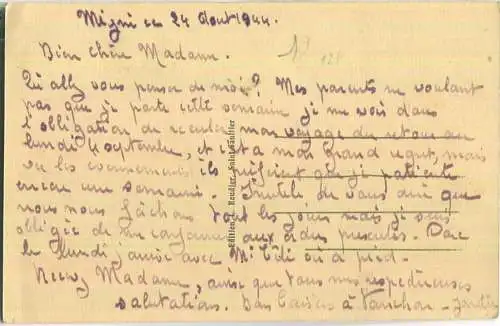 24 Août 1944.
Bien chère Madame.
Qu'allez vous penser de moi? Mes parents ne voulant
pas que je parte cette semaine je me vois dans
l'obligation de reculer mon voyage du retour au
lundi 4 septembre, et c'est a mon grand regret, mais
vu les evenements ils préfèrent que je patiente
encore une semaine. Inutile de vous dire que
nous nous fâchons tout les jours mais je suis
obligée de me conformer aux ordres
le lundi j'arrive avec Mr ou à pied.
Recevez Madame, ainsi que tous mes respectueuses
salutations. Bons baisers à